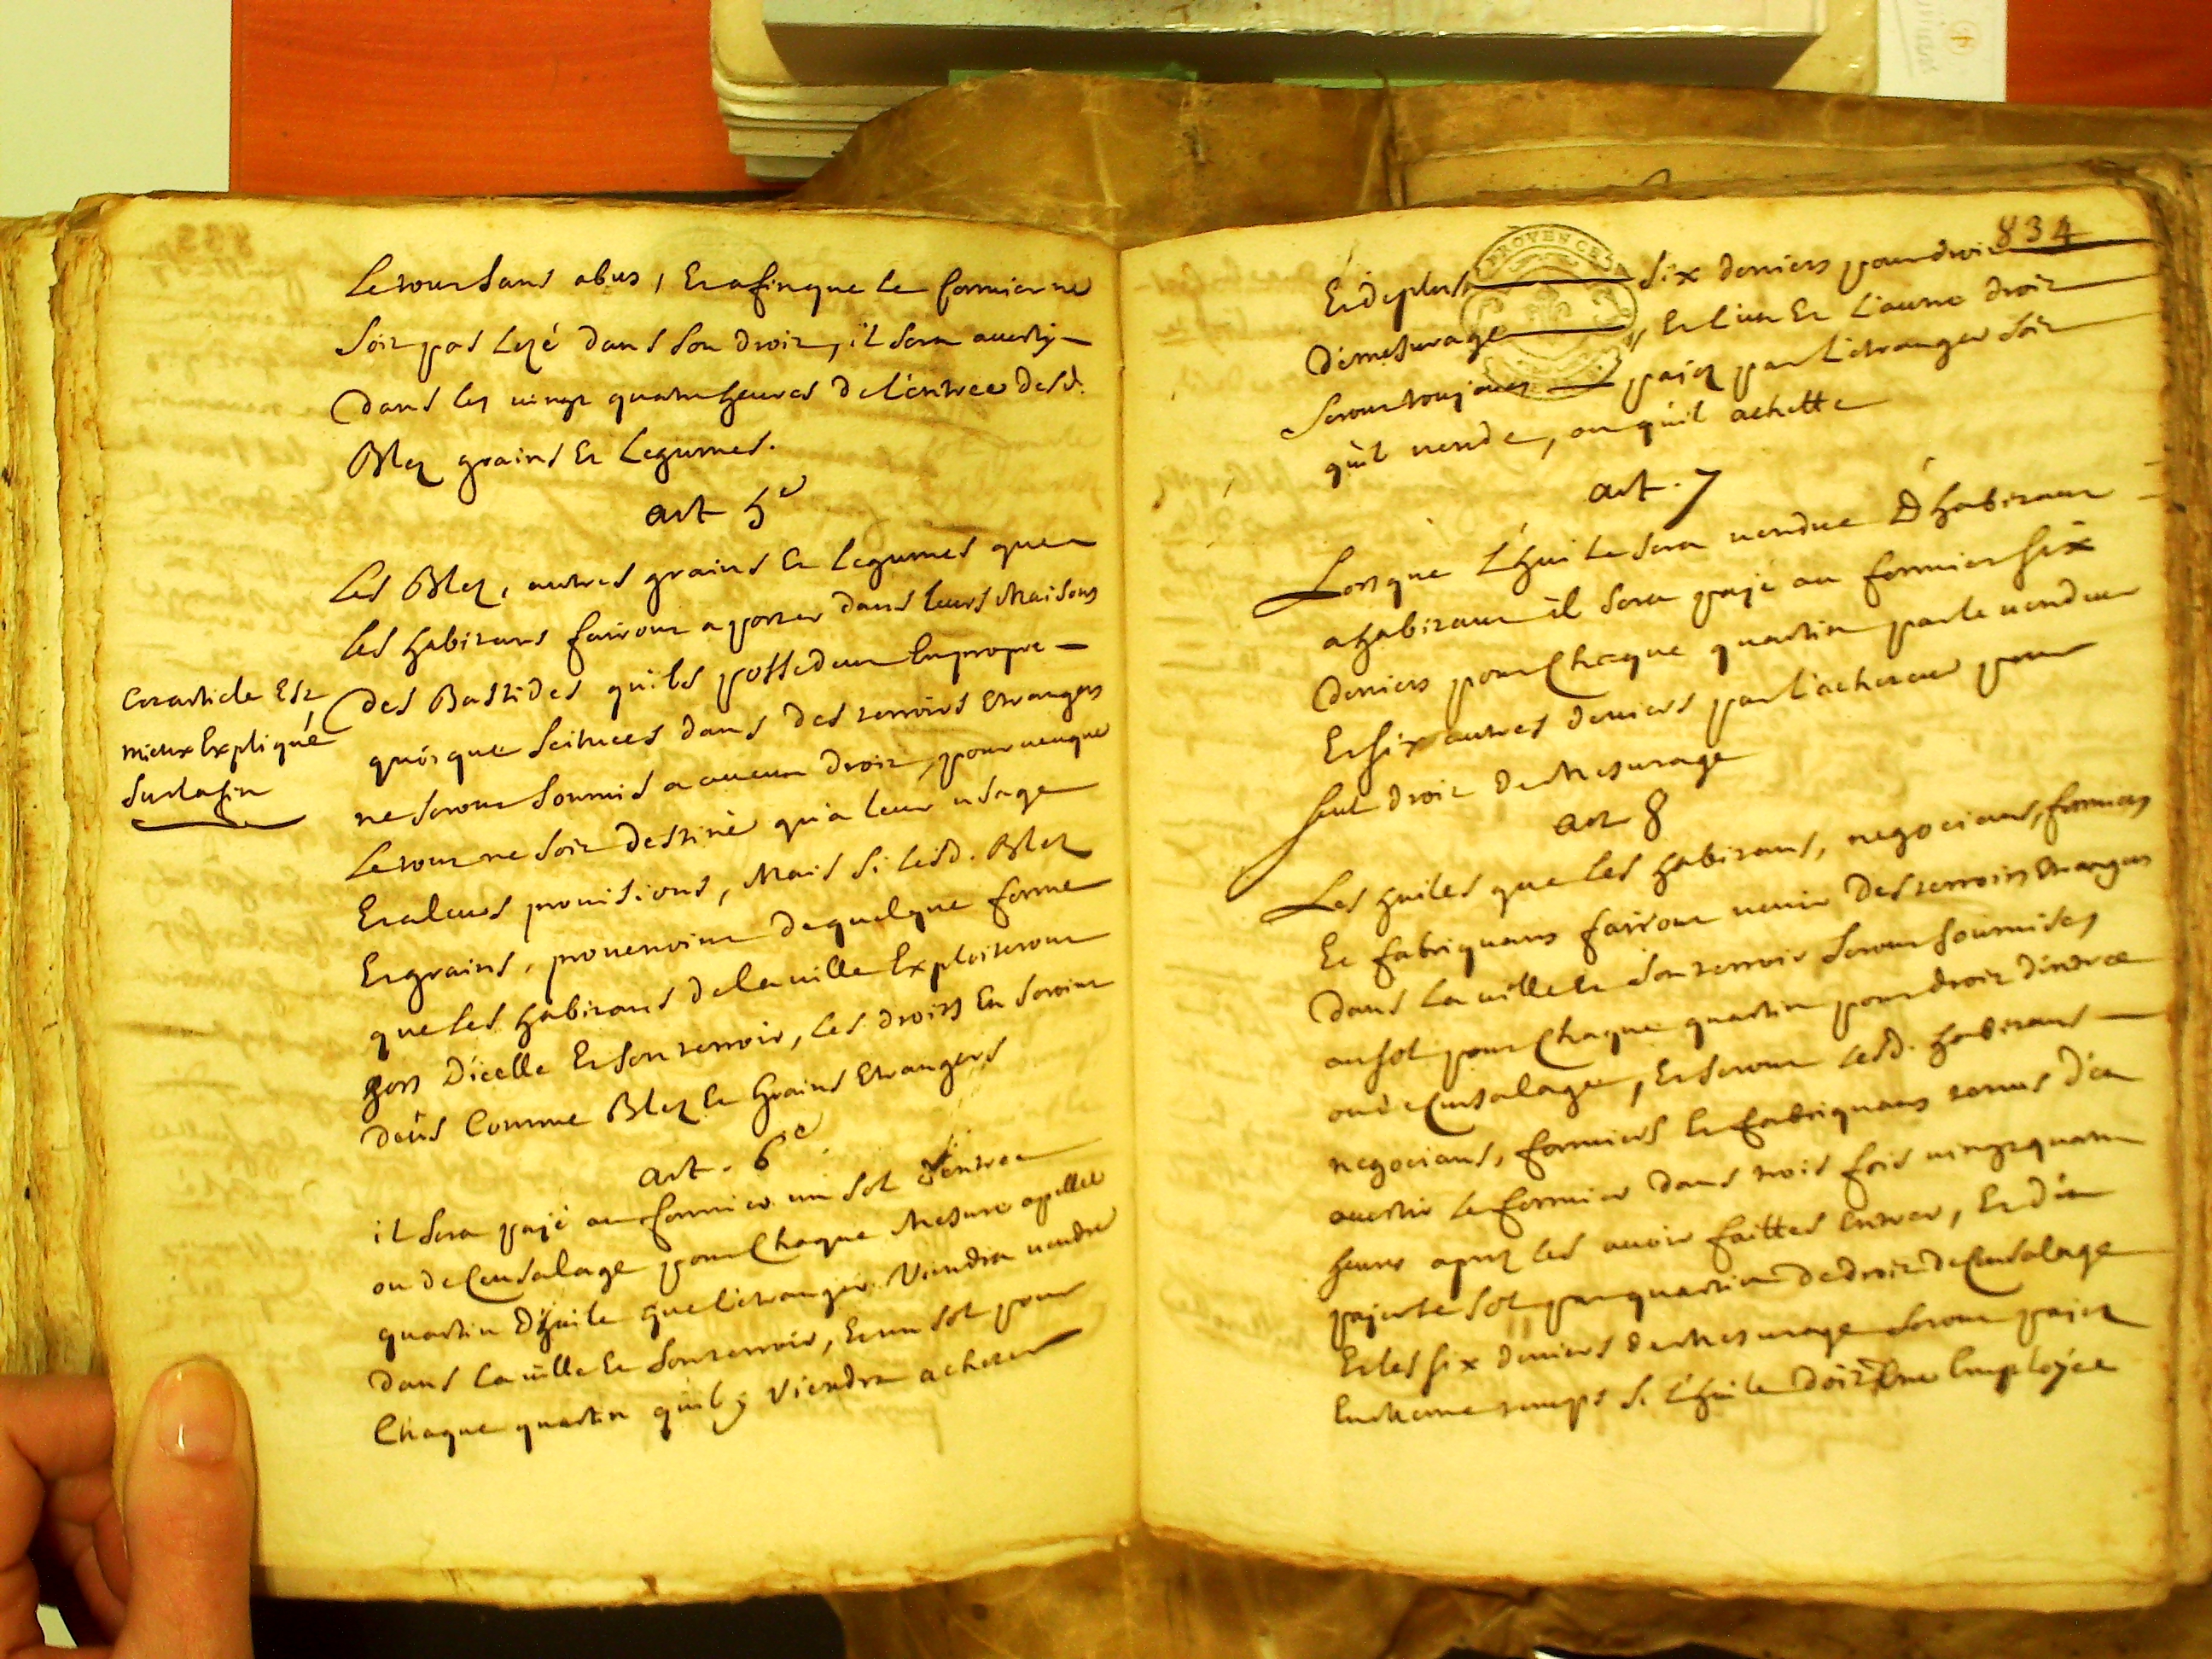 Le tout sans abus, Et afin que le fermier ne
soit pas Lezé dans son droit, il sera averty
Dans les vingt quatre heures De l'entree Desd.
Blez grains Et Legumes.
art 5e
Les Blez, autres grains Et legumes que
les habitans fairont aporter dans leurs Maisons
Des Bastides qu'ils possedent En propre
quoique scituees dans des terroirs Etrangers
ne seront soumis a aucun droit, pourveu que
Le tout ne soit destiné qu'a leur usage
Et a leurs provisions, Mais si lesd. Blez
Et grains, provenoint de quelque ferme
que les habitans de la ville Exploiteront
hors d'icelle Et son terroir, les droits En seroint
deûs Comme Blez Et Grains Etrangers
art. 6e
il sera payé au fermier un sol d'entree
ou de Censalage pour Chaque Mesure apellée
quartin D'huile que l'etranger Viendra vendre
Dans la ville Et son terroir, Et un sol pour
Chaque quartin qu'il y Viendra acheter
Cet article Est
mieux Expliqué
sur la fin
834
PROVENCE
Et de plus six deniers pour droit
de mesurage, Et l'un Et L'autre droit
seront toujours payez par L'etranger soit
qu'il vende, ou qu'il achette
art. 7
Lorsque L'huile sera vendue D'habitant
a habitant il sera payé au fermier six
Deniers pour Chaque quartin par le vendeur
Et six autres deniers par l'acheteur pour
seul droit de Mesurage
art 8
Les huiles que les habitans, negocians, fermiers
Et fabriquans fairont venir Des terroirs Etrangers
Dans La ville Et son terroir seront soumises
au sol pour Chaque quartin pour droit d'entree
ou de Censalage, Et seront lesd. habitans
negocians, fermiers Et fabriquans tenus d'en
avertir Le fermier dans trois fois vingt quatre
heures aprez les avoir faittes Entrer, Et d'en
payer le sol par quartin de droit de Censalage
Et les six deniers de Mesurage seront payez
En Meme temps si L'huile doit Etre Employée